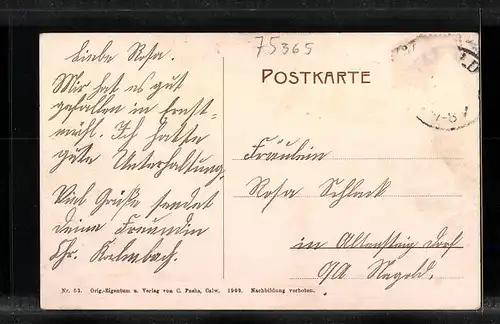 75365
POSTKARTE
Liebe Rosa.
Mir hat es gut
gefallen in Ernst-
mühl. Ich hatte
gute Unterhaltung.
Viel Grüße sendet
deine Freundin
Chr. Kalmbach.
Fräulein
Rosa Schleck
in Altensteig Dorf
O/A Nagold.
Nr. 53. Orig.-Eigentum u. Verlag von C. Fuchs, Calw. 1909. Nachbildung verboten.